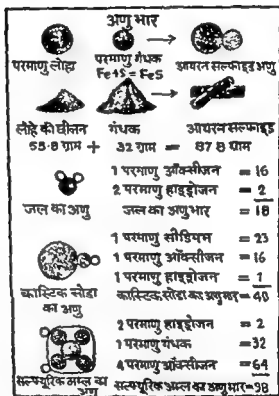 अणु भार
परमाणु लोहा
परमाणु गंधक
आयरन सल्फाइड अणु
Fe+S = FeS
लोहे की छीजन गंधक आयरन सल्फाइड
55.8 ग्राम + 32 ग्राम = 87.8 ग्राम
1 परमाणु ऑक्सीजन = 16
2 परमाणु हाइड्रोजन = 2
जल का अणु
जल का अणुभार = 18
1 परमाणु सोडियम = 23
1 परमाणु ऑक्सीजन = 16
1 परमाणु हाइड्रोजन = 1
कास्टिक सोडा का अणुभार = 40
कास्टिक सोडा
का अणु
2 परमाणु हाइड्रोजन = 2
1 परमाणु गंधक = 32
4 परमाणु ऑक्सीजन = 64
सल्फ्यूरिक अम्ल का अणुभार = 98
सल्फ्यूरिक अम्ल का
अणु